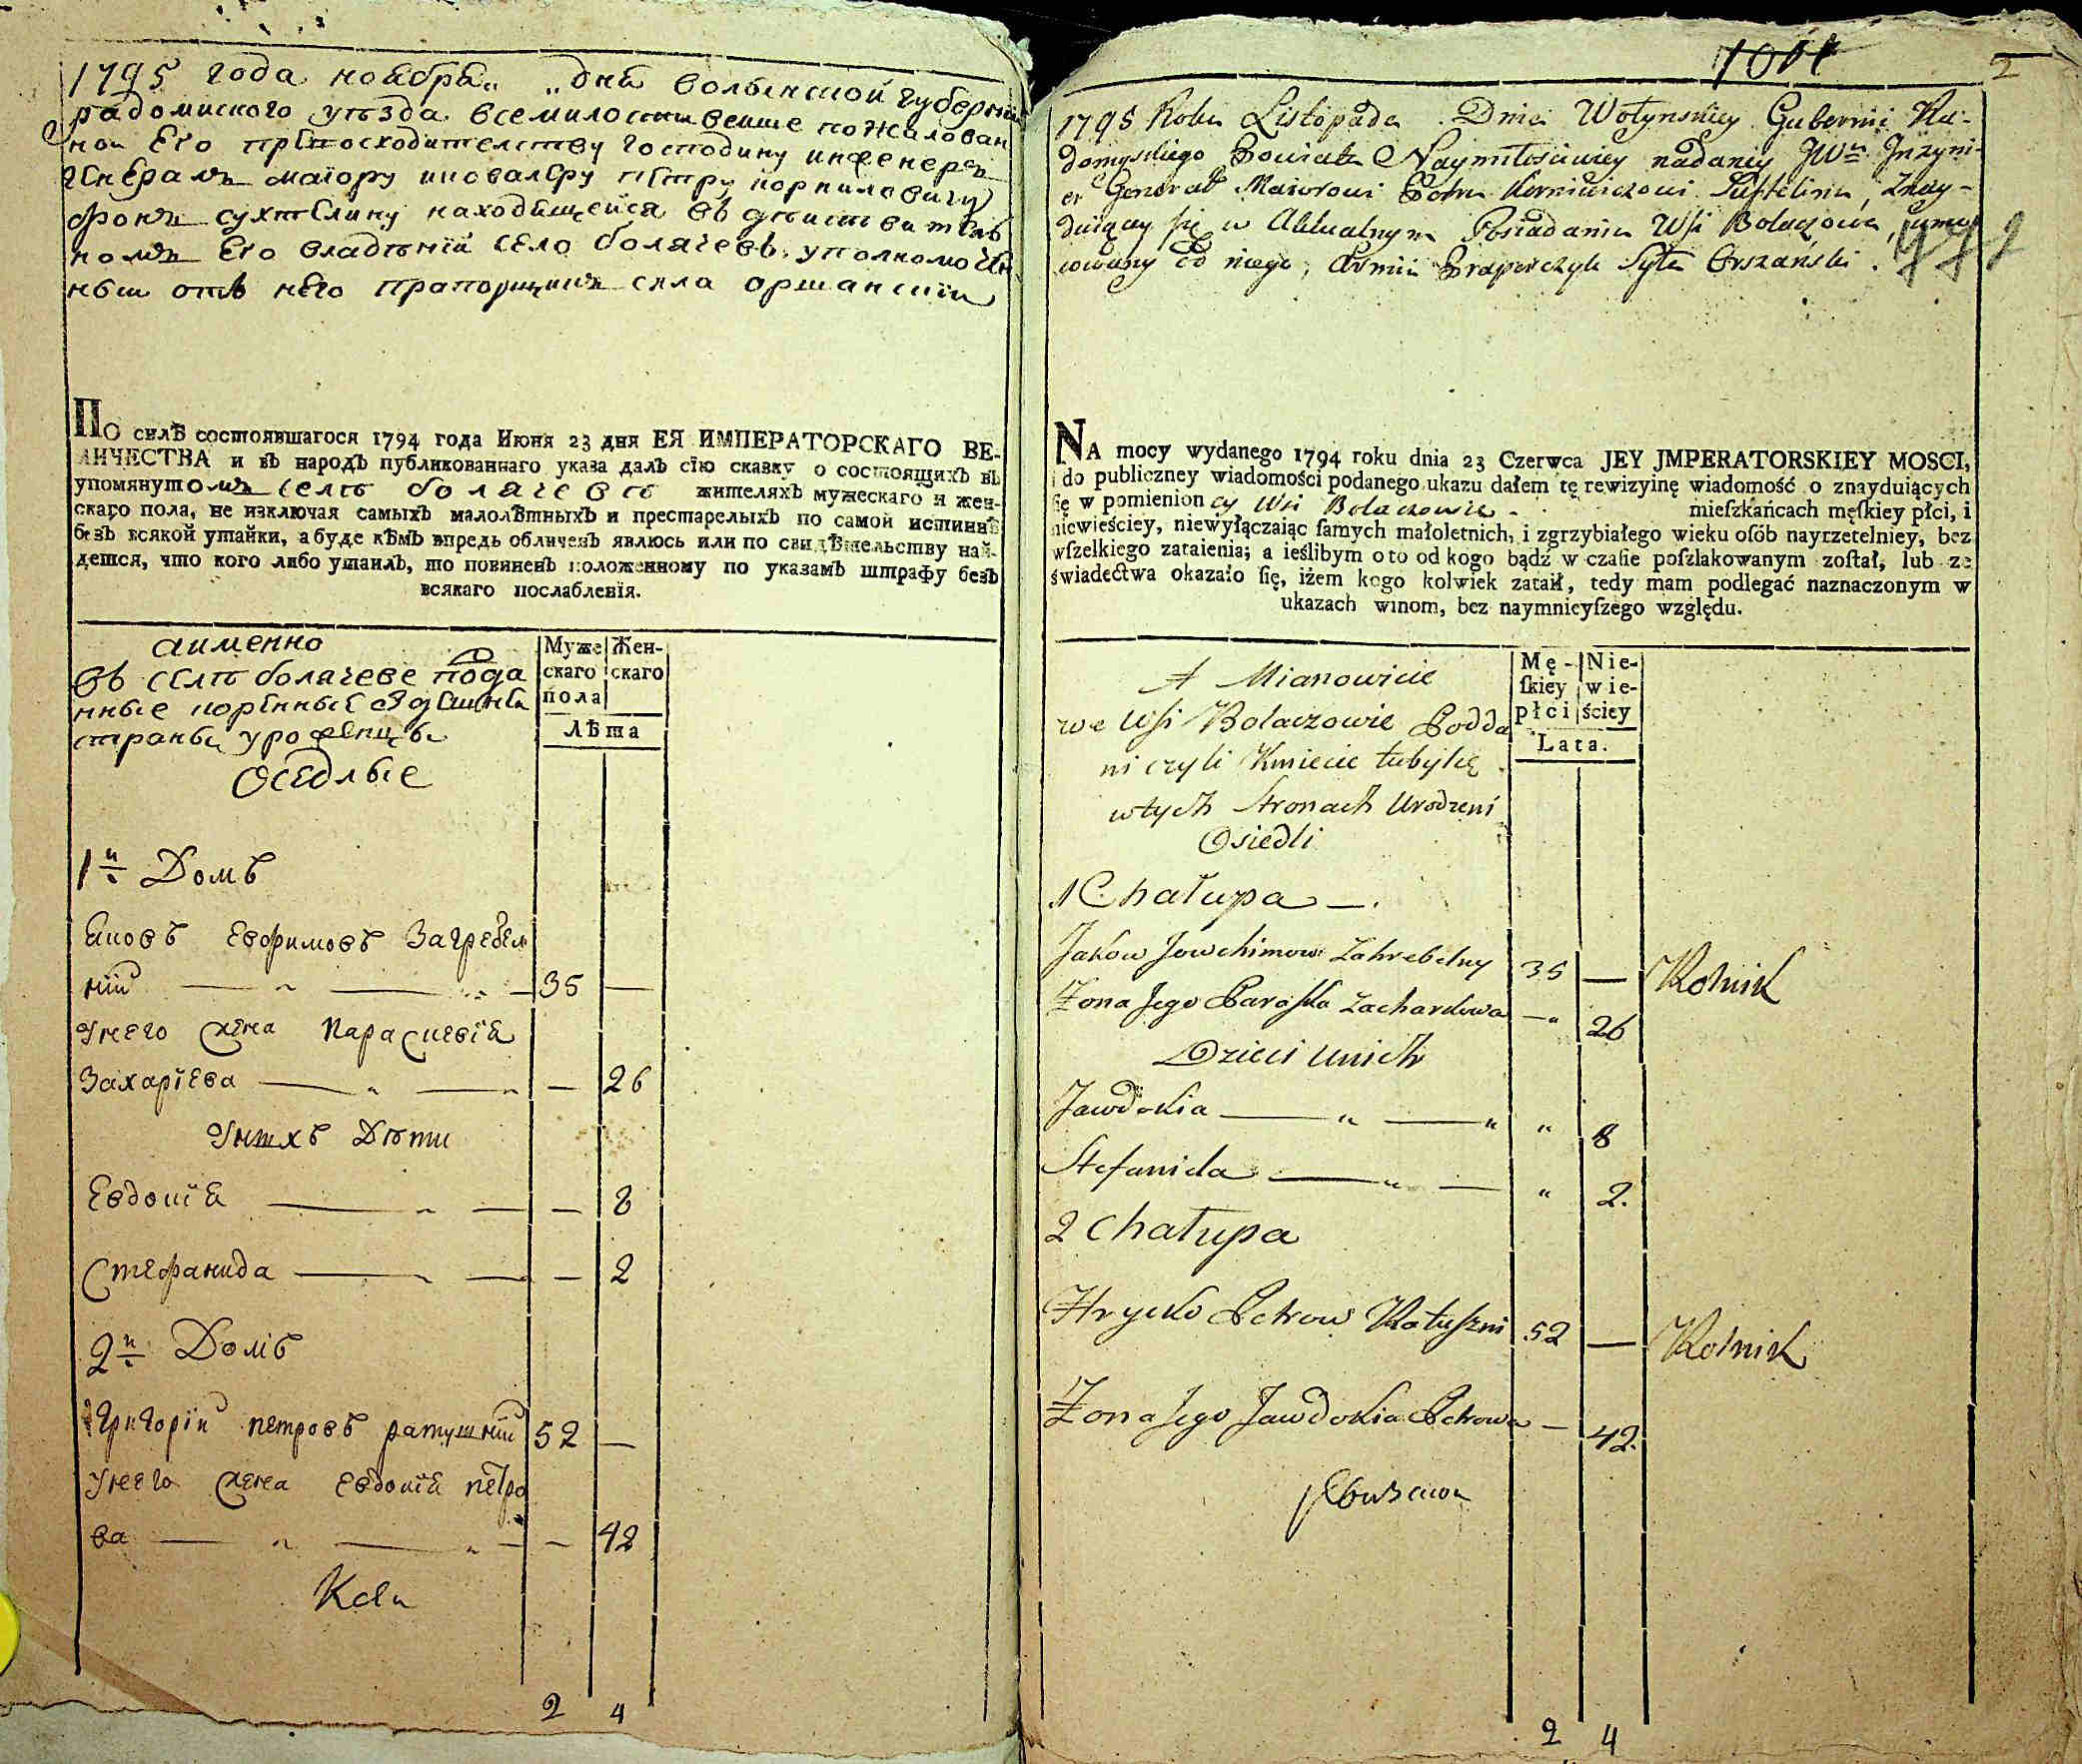 1795 года ноября „ „ дня волынской губернии
радомиского уезда всемилостивейше пожалован
ной Его превосходителству господину инженеръ
Генералъ маіору и кавалеру петру корниловичу
фонъ сухтелину находящейся въ дѣйствител
номъ Его владѣніи село болячевъ, уполномочен
ный отъ него прапорщикъ сила оршанскій
По силѣ состоявшагося 1794 года Июня 23 дня ЕЯ ИМПЕРАТОРСКАГО ВЕ-
ЛИЧЕСТВА и въ народъ публикованнаго указа далъ сїю сказку о состоящихъ въ
упомянутомъ селѣ болячевѣ жителяхъ мужескаго и жен-
скаго пола, не изключая самыхъ малолѣтныхъ и престарелыхъ по самой истиннѣ
безъ всякой утайки, а буде кѣмъ впредь обличенъ явлюсь или по свидѣтельству най-
дется, что кого либо утаилъ, то повиненъ положенному по указамъ штрафу безъ
всякаго послабленїя.
аименно
въ селѣ болячеве подда
нные коренные здешнея
страны уроженцы
Оседлые
Муже
скаго
пола
Жен-
скаго
Лѣта
1й Домъ
Яковъ Евфимовъ Загребел
ній — „ — „ — 35 —
Унего жена Параскевія
Захаріева — „ — „ — 26
Унихъ Дѣти
Евдокія — „ — — 8
Стефанида — „ — — 2
2й Домъ
Григорій петровъ ратушній 52 —
Унего жена Евдокія петро
ва — „ — „ — — 42
2 4
2
1795 Roku Listopada . Dnia Wołynskiey Gubernii Ra-
domyskiego Powiatu Naymiłosciwiey nadaney JWu Jnżyni-
er Generał Maiorowi Petru Korniłowiczowi Suhtelinu, Znay-
duiącey się w Aktualnym Posiadaniu Wsi Bolaczowa, umoc
cowany od niego, Chorąży Syła Orszański.
NA mocy wydanego 1794 roku dnia 23 Czerwca JEY JMPERATORSKIEY MOSCI,
i do publiczney wiadomości podanego ukazu dałem tę rewizyinę wiadomość o znayduiących
ſię w pomienioney Wsi Bolaczowie mieſzkańcach męſkiey płci, i
niewieściey, niewyłączaiąc ſamych małoletnich, i zgrzybiałego wieku oſób nayrzetelniey, bez
wſzelkiego zataienia; a ieślibym o to od kogo bądź w czaſie poſzlakowanym zoſtał, lub ze
świadectwa okazało ſię, iżem kogo kolwiek zataił, tedy mam podlegać naznaczonym w
ukazach winom, bez naymnieyſzego względu.
A Mianowicie
we Wsi Bolaczowie Podda
ni czyli Kmiecie tubylcę
wtych Stronach Urodzeni
Osiedli
Mę-
ſkiey
płci
Nie-
wie-
ściey
Lata.
1 Chałupa —.
Jakow Jowchimow Zahrebelny 35 — Rolnik
Żona Jego Paraska Zacharkowa — „ 26
Dzieci Unich
Jawdokia — „ — „ „ 8
Stefanida — „ — „ 2.
2 Chałupa
Hrycko Petrow Ratuszni 52 — Rolnik
Żona Jego Jawdokia Petrowa — 42.
2 4